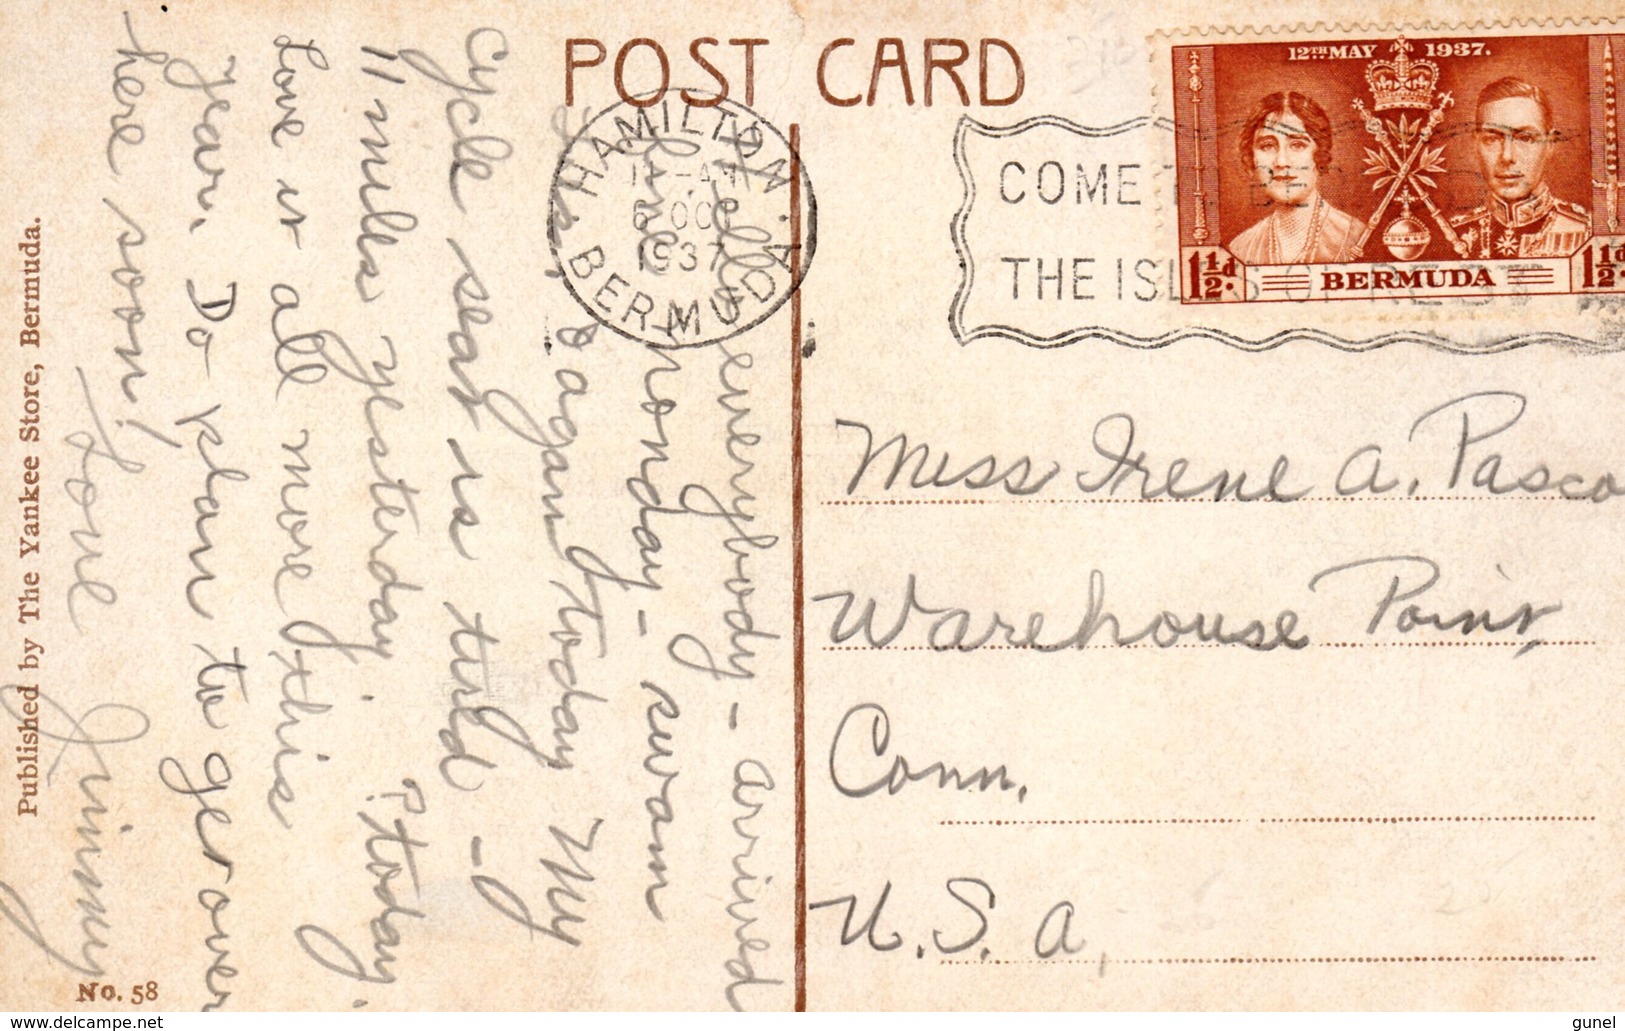 POST CARD
HAMILTON
BERMUDA
6 OC
1937
COME
THE ISL
12TH MAY 1937.
1½d.
BERMUDA
1½d.
Hello everybody - arrived
fine Monday - swam
again today My
Cycle seat is tired -
11 miles yesterday. today.
Love it all more this
year. Do plan to get over
here soon!
Love Jimmy
Miss Irene A. Pasco
Warehouse Point,
Conn.
U.S.A.
Published by The Yankee Store, Bermuda.
No. 58
www.delcampe.net
gunel